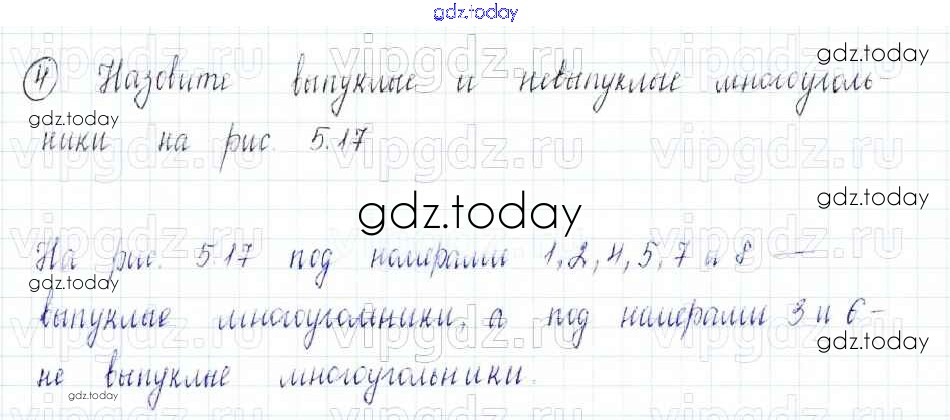 gdz.today
gdz.today
④ Назовите выпуклые и невыпуклые многоуголь
gdz.today
ники на рис. 5.17
gdz.today
gdz.today
На рис. 5.17 под номерами 1, 2, 4, 5, 7 и 8 —
gdz.today
выпуклые многоугольники, а под номерами 3 и 6 –
gdz.today
не выпуклые многоугольники.
gdz.today